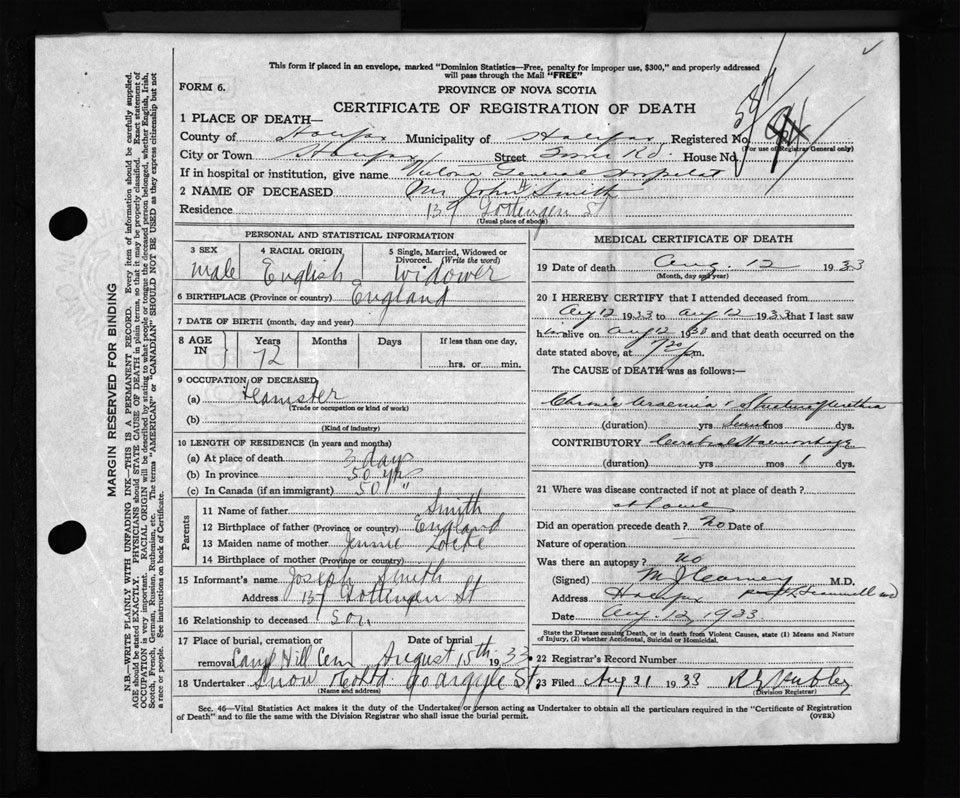 This form if placed in an envelope, marked "Dominion Statistics—Free, penalty for improper use, $300," and properly addressed
will pass through the Mail "FREE"
FORM 6.
PROVINCE OF NOVA SCOTIA
CERTIFICATE OF REGISTRATION OF DEATH
1 PLACE OF DEATH—
County of Halifax Municipality of Halifax Registered No.
(For use of Registrar General only)
City or Town Halifax Street House No.
If in hospital or institution, give name Victoria General Hospital
2 NAME OF DECEASED Mr John Smith
Residence 139 Gottingen St
(Usual place of abode)
PERSONAL AND STATISTICAL INFORMATION
3 SEX 4 RACIAL ORIGIN 5 Single, Married, Widowed or
Divorced. (Write the word)
Male English Widower
6 BIRTHPLACE (Province or country) England
7 DATE OF BIRTH (month, day and year)
8 AGE IN Years Months Days If less than one day,
72 hrs. or min.
9 OCCUPATION OF DECEASED,
(a) Teamster
(Trade or occupation or kind of work)
(b)
(Kind of industry)
10 LENGTH OF RESIDENCE (in years and months)
(a) At place of death 3 days
(b) In province 50 yrs
(c) In Canada (if an immigrant) 50 "
Parents
11 Name of father Smith
12 Birthplace of father (Province or country) England
13 Maiden name of mother Jennie Locke
14 Birthplace of mother (Province or country)
15 Informant's name Joseph Smith
Address Gottingen St
16 Relationship to deceased Son
17 Place of burial, cremation or Date of burial
removal Camp Hill Cem August 15th 1933
18 Undertaker Snow & Co Ltd Argyle St
(Name and address)
MEDICAL CERTIFICATE OF DEATH
19 Date of death Aug. 12 1933
(Month, day and year)
20 I HEREBY CERTIFY that I attended deceased from
Aug 12 1933 to Aug 12 1933 that I last saw
him alive on Aug 12 19 and that death occurred on the
date stated above, at m.
The CAUSE of DEATH was as follows:
Chronic Uraemia & Stricture of Urethra
(duration) yrs mos dys.
CONTRIBUTORY Cerebral Haemorrhage
(duration) yrs mos 1 dys.
21 Where was disease contracted if not at place of death?
at home
Did an operation precede death? No Date of
Nature of operation —
Was there an autopsy? no
(Signed) M.D.
Address Halifax
Date Aug. 1933
State the Disease causing Death, or in death from Violent Causes, state (1) Means and Nature
of Injury, (2) whether Accidental, Suicidal or Homicidal.
22 Registrar's Record Number
23 Filed Aug 21 1933
(Division Registrar)
Sec. 46—Vital Statistics Act makes it the duty of the Undertaker or person acting as Undertaker to obtain all the particulars required in the "Certificate of Registration
of Death" and to file the same with the Division Registrar who shall issue the burial permit. (OVER)
MARGIN RESERVED FOR BINDING
N.B.—WRITE PLAINLY WITH UNFADING INK—THIS IS A PERMANENT RECORD. Every item of information should be carefully supplied.
AGE should be stated EXACTLY. PHYSICIANS should STATE CAUSE OF DEATH in plain terms, so that it may be properly classified. Exact statement of
OCCUPATION is very important. RACIAL ORIGIN will be described by stating to what people or tongue the deceased person belonged, whether English, Irish,
Scotch, French, German, Russian, Ruthenian, etc. The terms "AMERICAN" or "CANADIAN" SHOULD NOT BE USED as they express citizenship but not
a race or people. See instructions on back of Certificate.